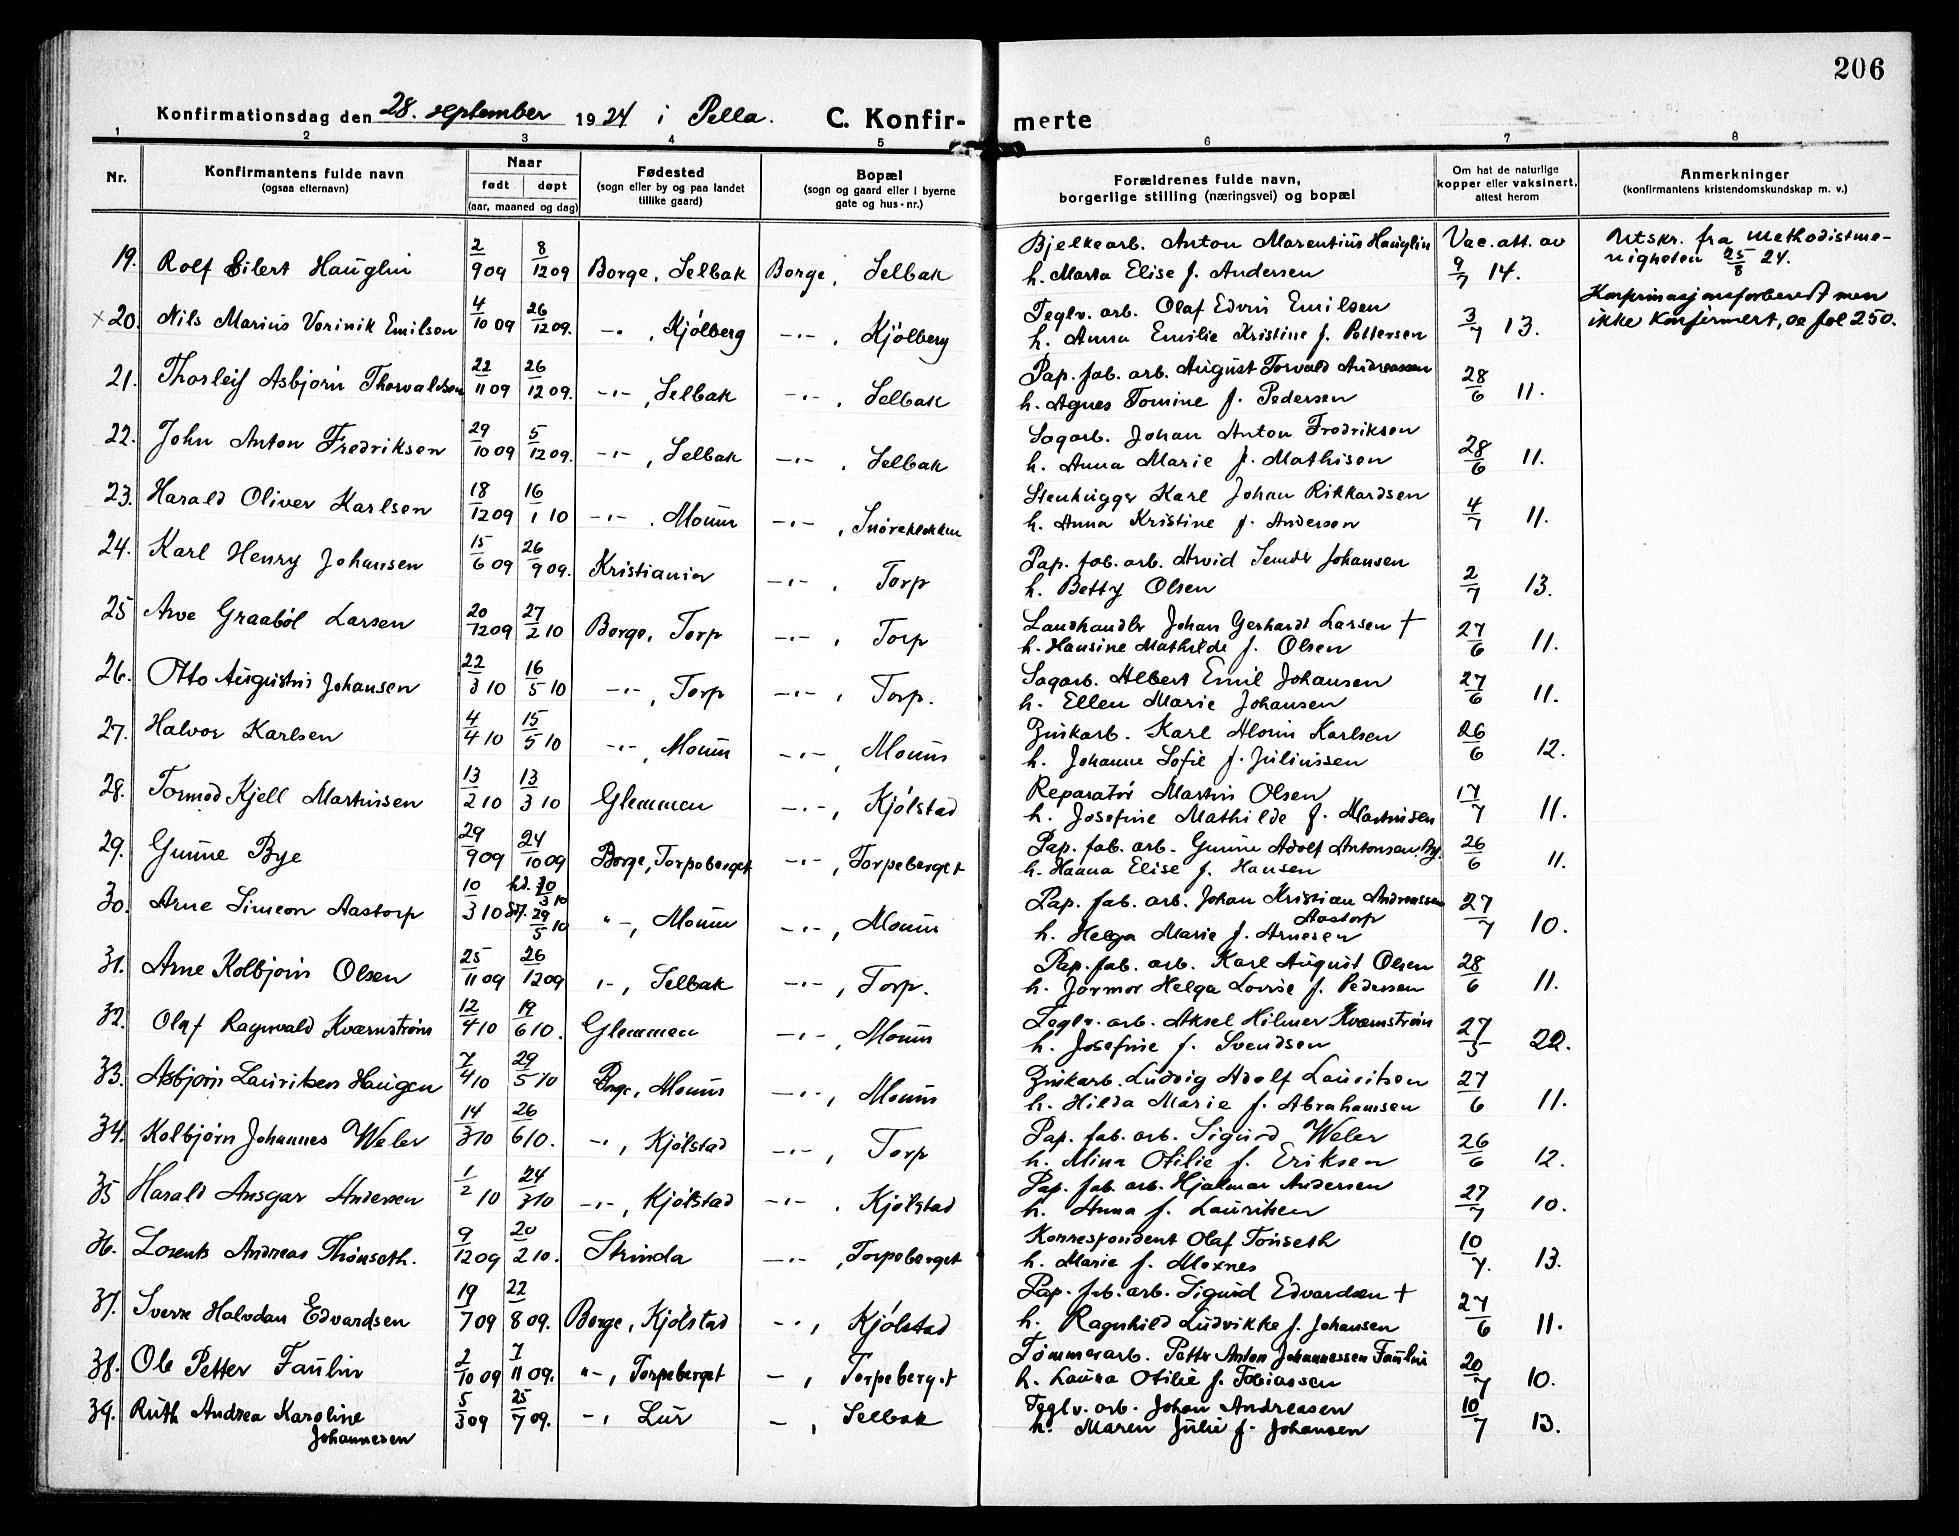 206
Konfirmationsdag den 28. september 1924 i Pella. C. Konfir- merte
1 2 3 4 5 6 7 8
Nr. Konfirmantens fulde navn (ogsaa efternavn) Naar født døpt (aar, maaned og dag) Fødested (sogn eller by og paa landet tillike gaard) Bopæl (sogn og gaard eller i byerne gate og hus-nr.) Forældrenes fulde navn, borgerlige stilling (næringsvei) og bopæl Om hat de naturlige kopper eller vaksinert, attest herom Anmerkninger (konfirmantens kristendomskundskap m. v.)
19. Rolf Eilert Hauglin 2/9 09 8/12 09 Borge, Selbak Borge, Selbak Bjelkearb. Anton Marentius Hauglin Vac. att. av Utskr. fra Methodistme-
h. Marta Elise f. Andersen 9/7 14. nigheten 25/8 24.
×20. Nils Marius Verinik Emilsen 4/10 09 26/12 09. -"-, Kjølberg -"-, Kjølberg Teglv. arb. Olaf Edvin Emilsen 3/7 13. Konfirmasjonsforberedt men
h. Anna Emilie Kristine f. Pettersen ikke konfirmert, se fol 250.
21. Thorleif Asbjørn Thorvaldsen 22/11 09 26/12 09. -"-, Selbak -"-, Selbak Pap. fab. arb. August Torvald Andreassen 28/6 11.
h. Agnes Tomine f. Pedersen
22. John Anton Fredriksen 29/10 09 5/12 09. -"-, Selbak -"-, Selbak Sagarb. Johan Anton Fredriksen 28/6 11.
h. Anna Marie f. Mathisen
23. Harald Oliver Karlsen 18/12 09 16/1 10 -"-, Moum -"-, Snørekløkken Stenhugger Karl Johan Rikkardsen 4/7 11.
h. Anna Kristine f. Andersen
24. Karl Henry Johansen 15/6 09 26/9 09. Kristiania -"-, Torp Pap. fab. arb. Arvid Johansen 2/7 13.
h. Betty Olsen
25 Arve Graabøl Larsen 20/12 09 27/2 10 Borge, Torp -"-, Torp Landhandler Johan Gerhard Larsen † 27/6 11.
h. Hansine Mathilde f. Olsen
26. Otto Augustin Johansen 22/3 10 16/5 10 -"-, Torp -"-, Torp. Sagarb. Albert Emil Johansen 27/6 11.
h. Ellen Marie Johansen
27. Halvor Karlsen 4/4 10 15/5 10 -"-, Moum -"-, Moum Zinkarb. Karl Alorin Karlsen 26/6 12.
h. Johanne Sofie f. Juliussen
28. Tormod Kjell Martinsen 13/2 10 13/3 10 Glemmen -"-, Kjølstad Reparatør Martin Olsen 17/7 11.
h. Josefine Mathilde f. Martinsen
29. Gunne Bye 29/9 09 24/10 09 Borge, Torpeberget -"-, Torpeberget Pap. fab. arb. Gunne Adolf Antonsen By. 26/6 11.
h. Hanna Elise f. Hansen
30. Arne Simeon Aastorp 10/3 10 hd. 20/3 10 stf. 29/5 10 "-, Moum -"-, Moum Pap. fab. arb. Johan Kristian Andreassen Aastorp 27/7 10.
h. Helga Marie f. Arnesen
31. Arne Kolbjørn Olsen 25/11 09 26/12 09 "-, Selbak -"-, Torp. Pap. fab. arb. Karl August Olsen 28/6 11.
h. Jørmor Helga Lovise f. Pedersen
32. Olaf Ragnvald Kværnstrøm 12/4 10 19/6 10. Glemmen -"-, Moum Teglv. arb. Aksel Hilmer Kværnstrøm 27/5 22.
h. Josefine f. Svendsen
33. Asbjørn Lauritsen Haugen 7/4 10 29/5 10 Borge, Moum -"-, Moum Zinkarb. Ludvig Adolf Lauritsen 27/6 11.
h. Hilda Marie f. Abrahamsen
34. Kolbjørn Johannes Weler 14/3 10 26/6 10. -"-, Kjølstad -"-, Torp Pap. fab. arb. Sigurd Weler 26/6 12.
h. Mina Otilie f. Eriksen
35 Harald Ansgar Andersen 1/2 10 24/3 10 -"-, Kjølstad -"-, Kjølstad Pap. fab. arb. Hjalmar Andersen 27/7 10.
h. Anna f. Lauritsen
36. Lorents Andreas Thønseth. 9/12 09 20/2 10. Strinda -"-, Torpeberget Korrespondent Olaf Tønseth 10/7. 13.
h. Marie f. Moxnes
37. Sverre Halvdan Edvardsen 19/7 09 22/8 09. Borge, Kjølstad -"-, Kjølstad Pap. fab. arb. Sigurd Edvardsen † 27/6 11.
h. Ragnhild Ludvikke f. Johansen
38. Ole Petter Faulin 2/10 09 7/11 09. "-, Torpeberget -, Torpeberget Tømmerarb. Petter Anton Johannessen Faulin 20/7 10.
h. Laura Otilie f. Tobiassen
39. Ruth Andrea Karoline 5/3 09 25/7 09. -"-, Lur -, Selbak Teglv. arb. Johan Andreasen 10/7 13.
Johannesen h. Maren Julie f. Johansen